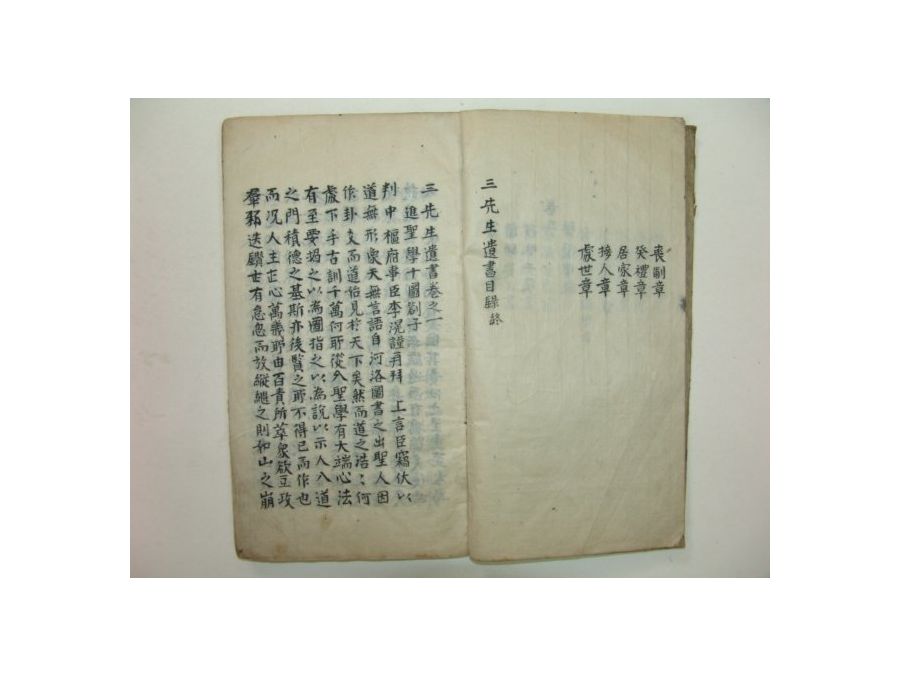 喪制章
祭禮章
居家章
接人章
處世章
三先生遺書目録終
三先生遺書卷之一
進聖學十圖劄子
判中樞府事臣李滉謹再拜 上言臣竊伏以
道無形象天無言語自河洛圖書之出聖人因
作卦爻而道始見於天下矣然而道之浩〻何
處下手古訓千萬何所從入聖學有大端心法
有至要揭之以為圖指之以為說以示人入道
之門積德之基斯亦後賢之所不得已而作也
而况人主正心萬幾所由百責所萃衆欲互攻
羣邪迭鑽世有怠忽而放縱繼之則如山之崩